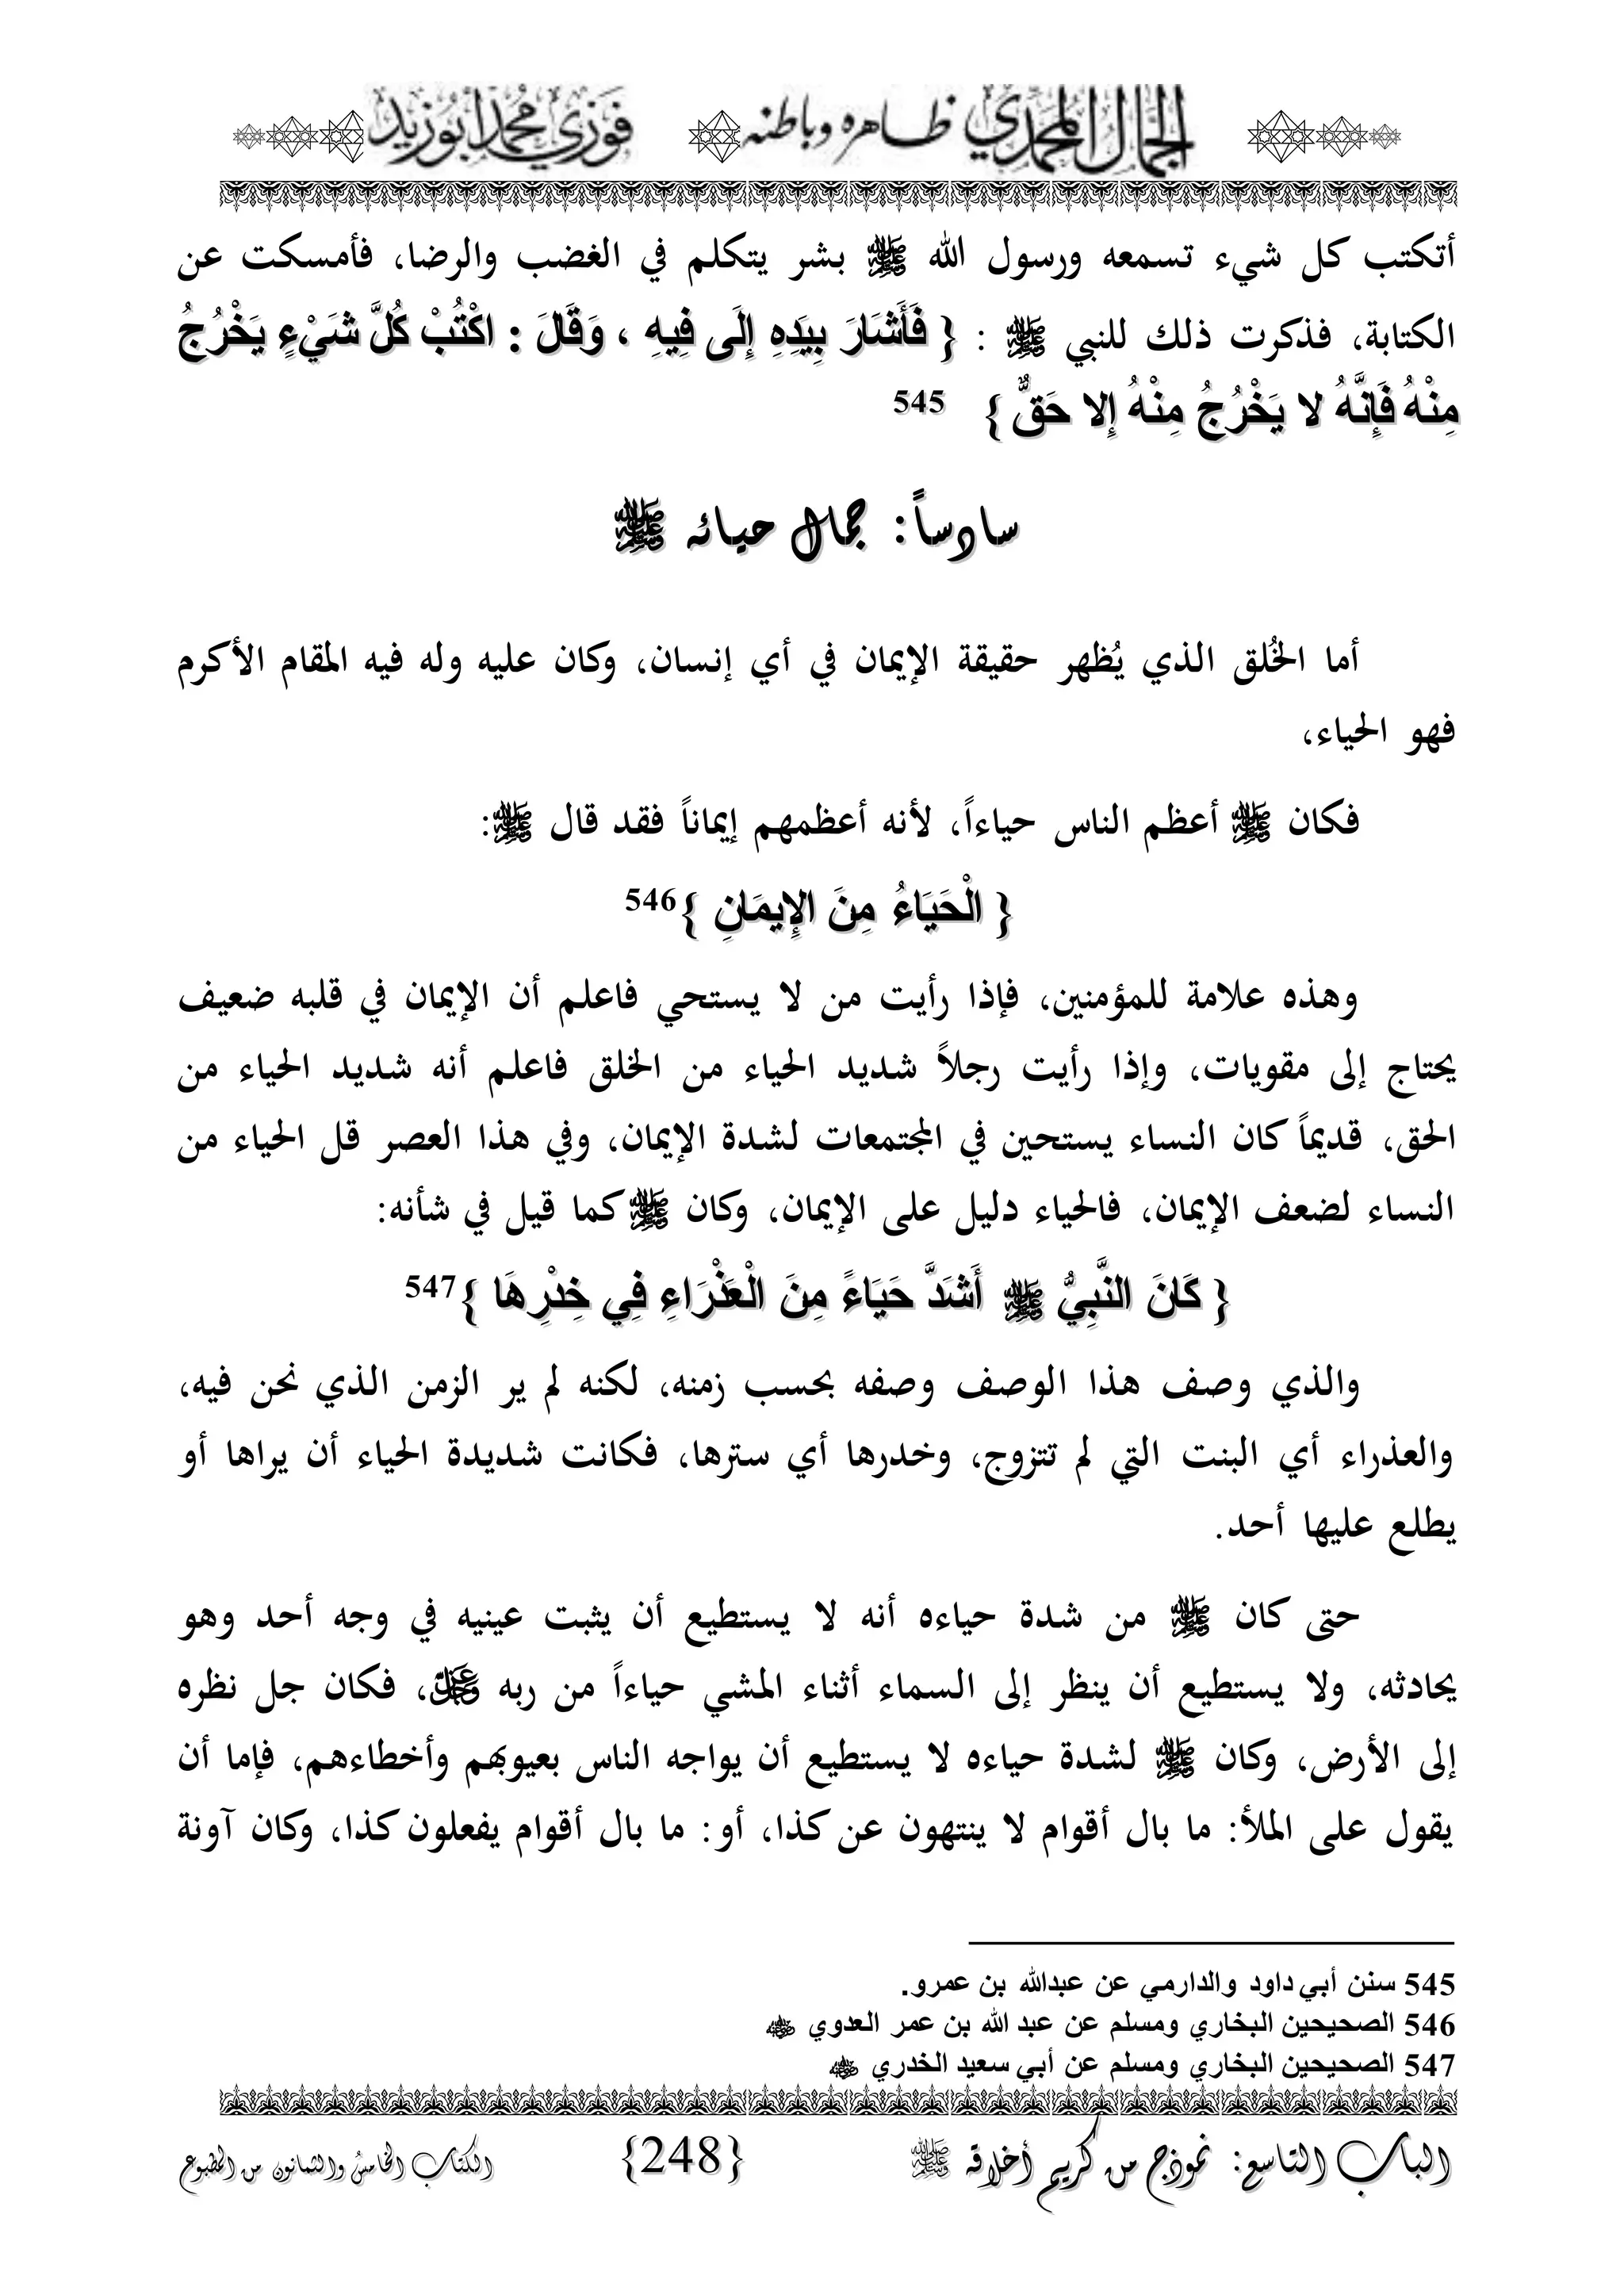 الجمال المحمدي ظاهره وباطنه فوزي محمد أبوزيد
أتكتب كل شيء تسمعه ورسول الله ﷺ بشر يتكلم في الغضب والرضا، فأمسكت عن
الكتابة، فذكرت ذلك للنبي ﷺ : { فَأَشَارَ بِيَدِهِ إِلَى فِيهِ ، وَقَالَ : اكْتُبْ كُلَّ شَيْءٍ يَخْرُجُ
مِنْهُ فَإِنَّهُ لا يَخْرُجُ مِنْهُ إِلا حَقٌّ } 545
سادساً: جمال حيائه ﷺ
أما الخُلق الذي يُظهر حقيقة الإيمان في أي إنسان، وكان عليه وله فيه المقام الأكرم
فهو الحياء،
فكان ﷺ أعظم الناس حياءاً، لأنه أعظمهم إيماناً فقد قال ﷺ:
{ الْحَيَاءُ مِنَ الإِيمَانِ }546
وهذه علامة للمؤمنين، فإذا رأيت من لا يستحي فاعلم أن الإيمان في قلبه ضعيف
يحتاج إلى مقويات، وإذا رأيت رجلاً شديد الحياء من الخلق فاعلم أنه شديد الحياء من
الحق، قديماً كان النساء يستحين في المجتمعات لشدة الإيمان، وفي هذا العصر قل الحياء من
النساء لضعف الإيمان، فالحياء دليل على الإيمان، وكان ﷺ كما قيل في شأنه:
{ كَانَ النَّبِيُّ ﷺ أَشَدَّ حَيَاءً مِنَ الْعَذْرَاءِ فِي خِدْرِهَا }547
والذي وصف هذا الوصف وصفه بحسب زمنه، لكنه لم ير الزمن الذي نحن فيه،
والعذراء أي البنت التي لم تتزوج، وخدرها أي سترها، فكانت شديدة الحياء أن يراها أو
يطلع عليها أحد.
حتى كان ﷺ من شدة حياءه أنه لا يستطيع أن يثبت عينيه في وجه أحد وهو
يحادثه، ولا يستطيع أن ينظر إلى السماء أثناء المشي حياءاً من ربه عز وجل، فكان جل نظره
إلى الأرض، وكان ﷺ لشدة حياءه لا يستطيع أن يواجه الناس بعيوبهم وأخطاءهم، فإما أن
يقول على الملأ: ما بال أقوام لا ينتهون عن كذا، أو: ما بال أقوام يفعلون كذا، وكان آونة
545 سنن أبي داود والدارمي عن عبدالله بن عمرو.
546 الصحيحين البخاري ومسلم عن عبد الله بن عمر العدوي
547 الصحيحين البخاري ومسلم عن أبي سعيد الخدري
الباب التاسع: نموذج من كريم أخلاقه ﷺ {248} الكتاب الخامس والثمانون من المطبوع